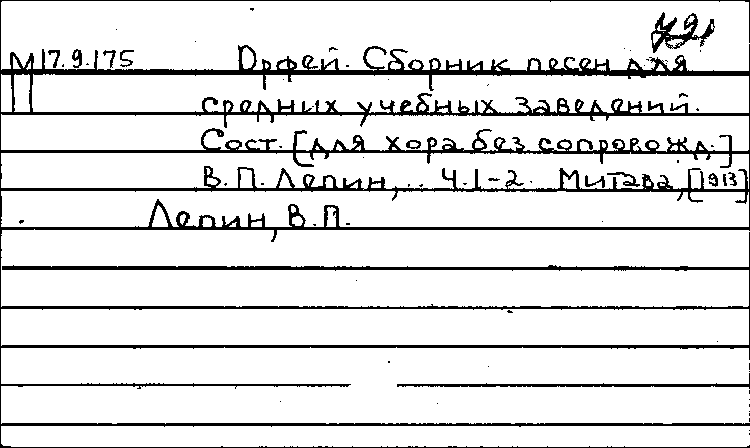 М 17.9.175 Орфей. Сборник песен для
средних учебных заведений.
Сост. [для хора без сопровожд.]
В.П. Лепин, .. Ч.1-2. Митава, [1913]
Лепин, В.П.